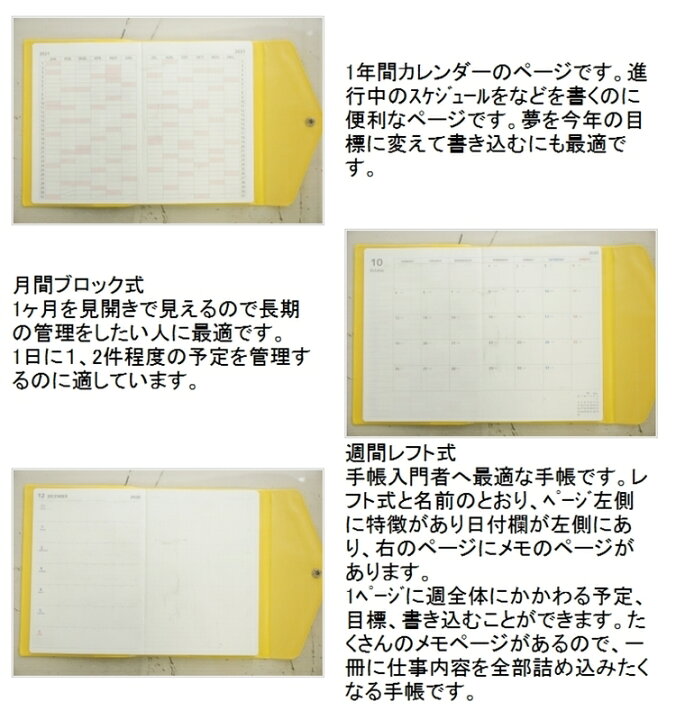 2021
2021
1年間カレンダーのページです。進
行中のｽｹｼﾞｭｰﾙをなどを書くのに
便利なページです。夢を今年の目
標に変えて書き込むにも最適で
す。
月間ブロック式
1ヶ月を見開きで見えるので長期
の管理をしたい人に最適です。
1日に1、2件程度の予定を管理す
るのに適しています。
10
2020
週間レフト式
手帳入門者へ最適な手帳です。レ
フト式と名前のとおり、ﾍﾟｰｼﾞ左側
に特徴があり日付欄が左側にあ
り、右のページにメモのページが
あります。
1ﾍﾟｰｼﾞに週全体にかかわる予定、
目標、書き込むことができます。た
くさんのメモページがあるので、一
冊に仕事内容を全部詰め込みたく
なる手帳です。
12 DECEMBER
2020